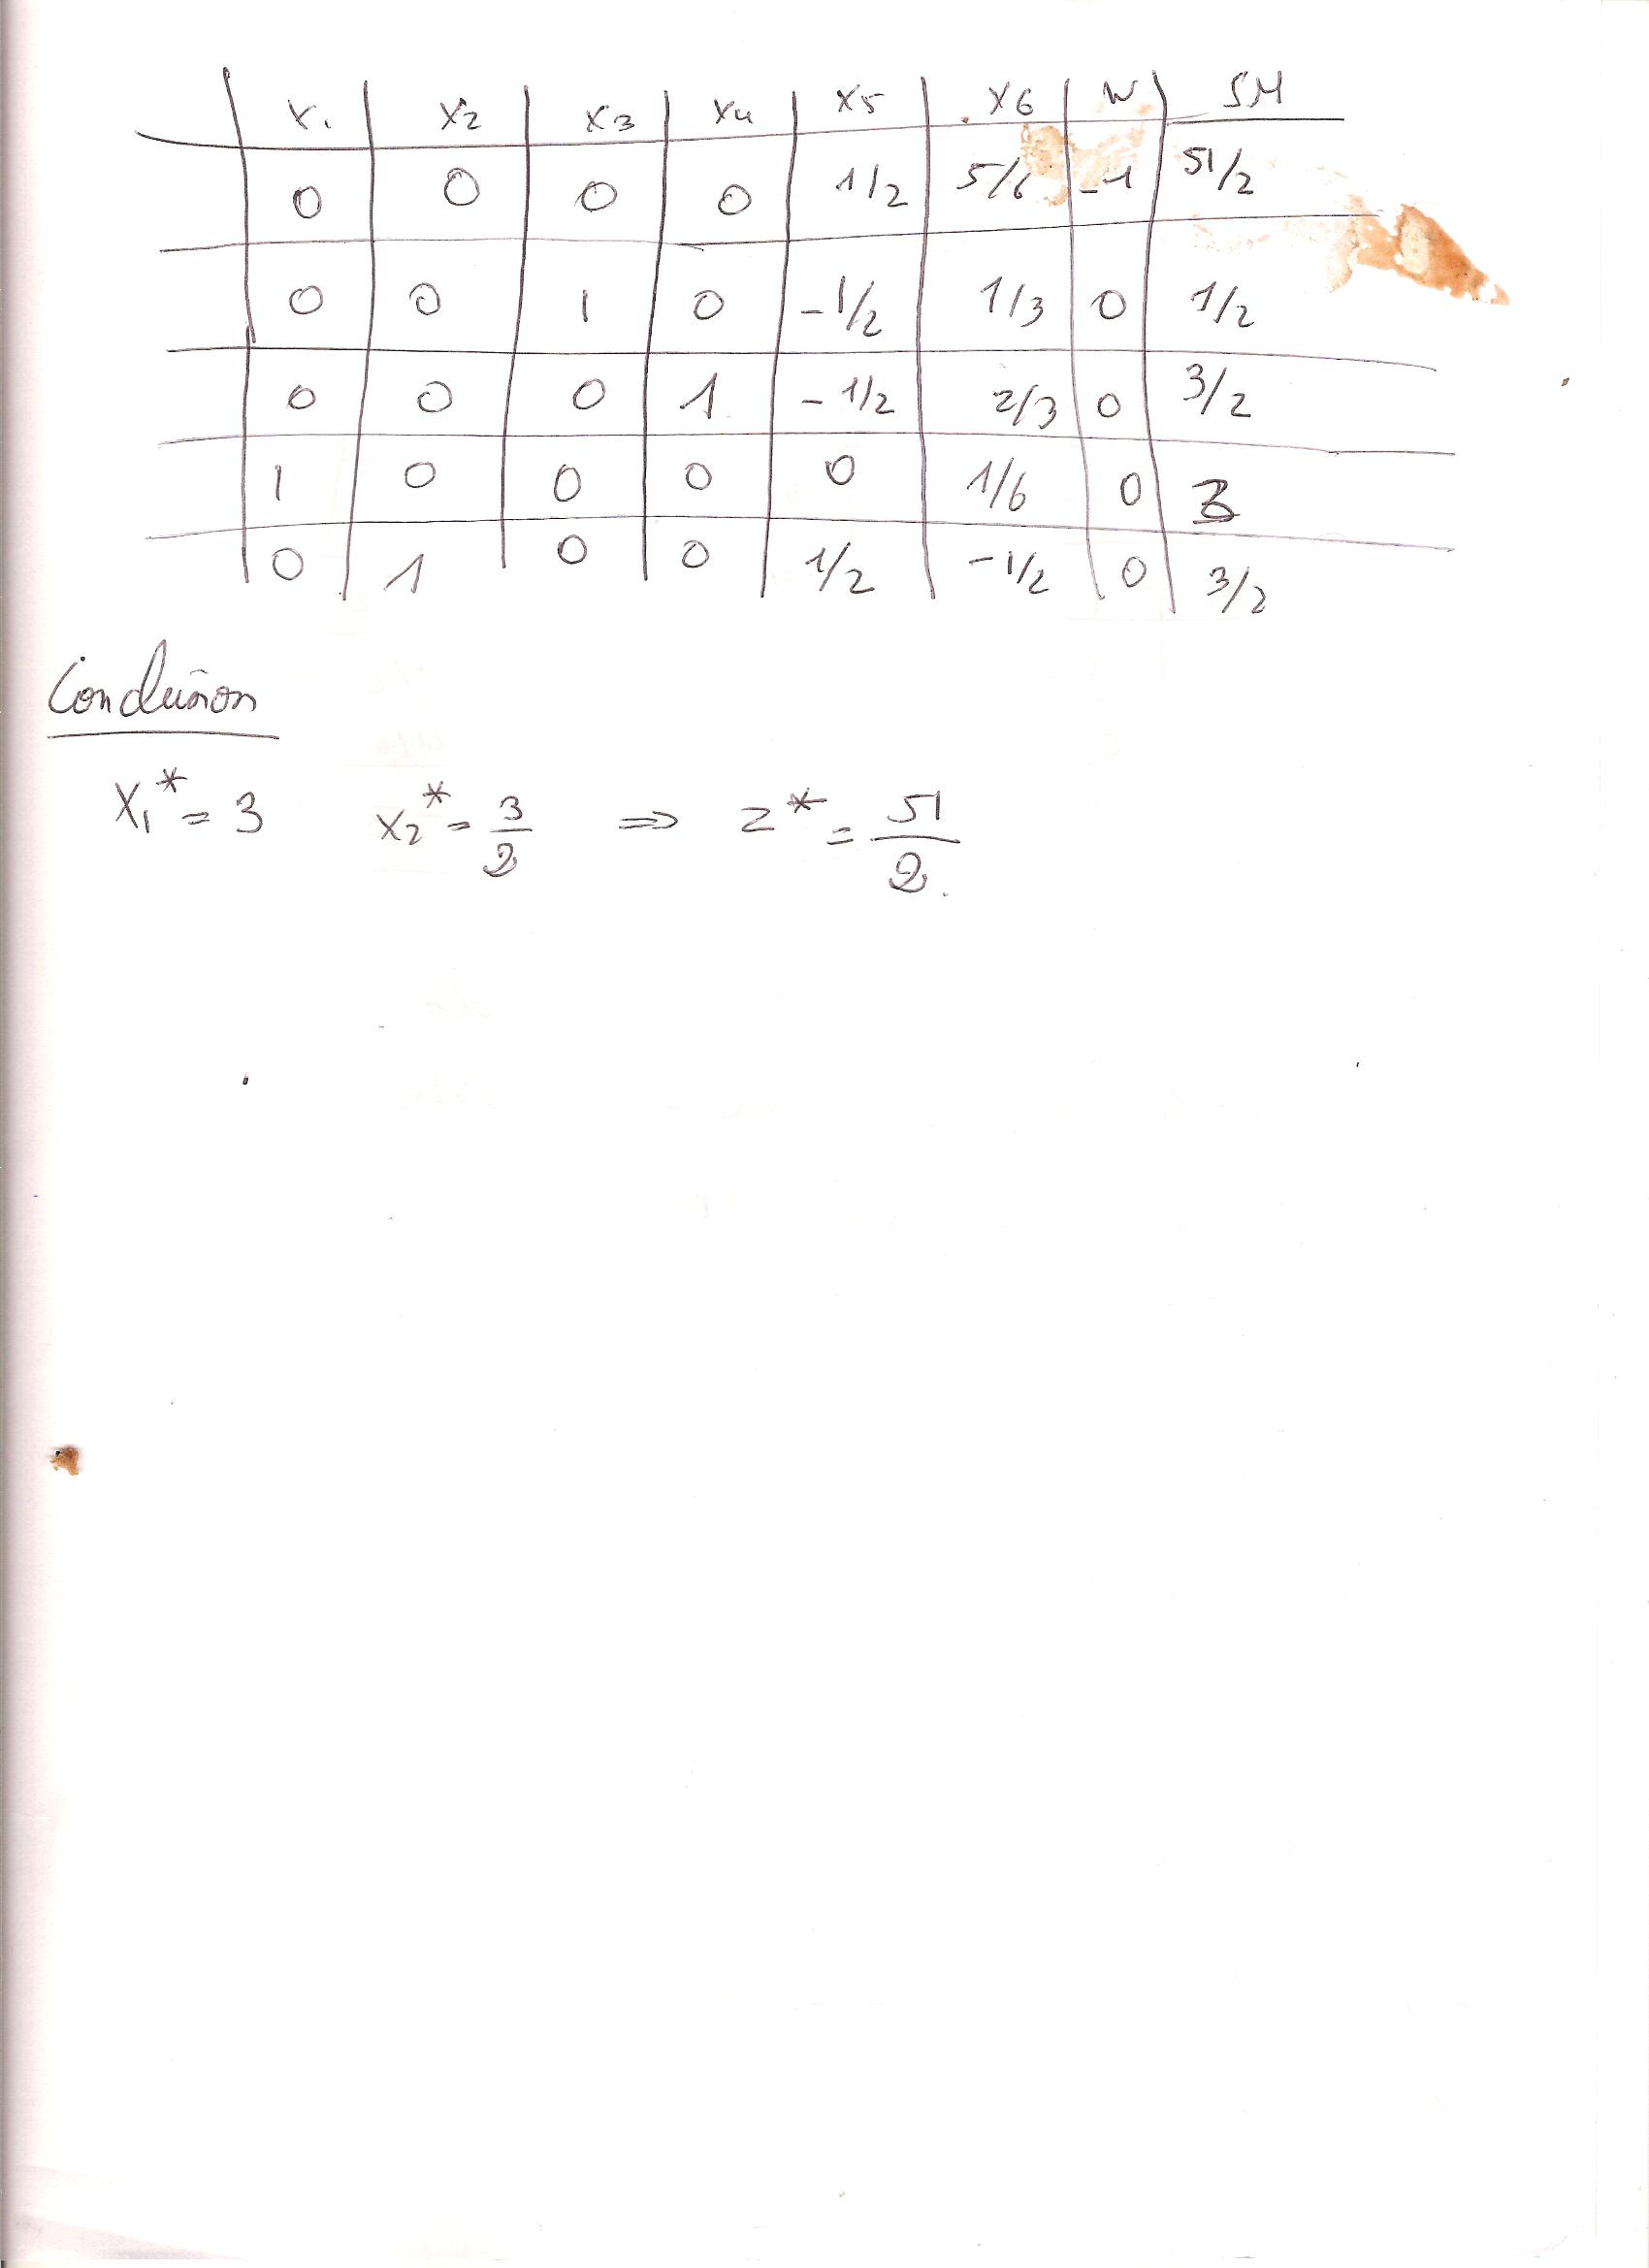 x1 x2 x3 x4 x5 x6 w SM
0 0 0 0 1/2 5/6 -1 51/2
0 0 1 0 -1/2 1/3 0 1/2
0 0 0 1 -1/2 2/3 0 3/2
1 0 0 0 0 1/6 0 3
0 1 0 0 1/2 -1/2 0 3/2
Conclusion
x1* = 3 x2* = 3/2 => z* = 51/2.